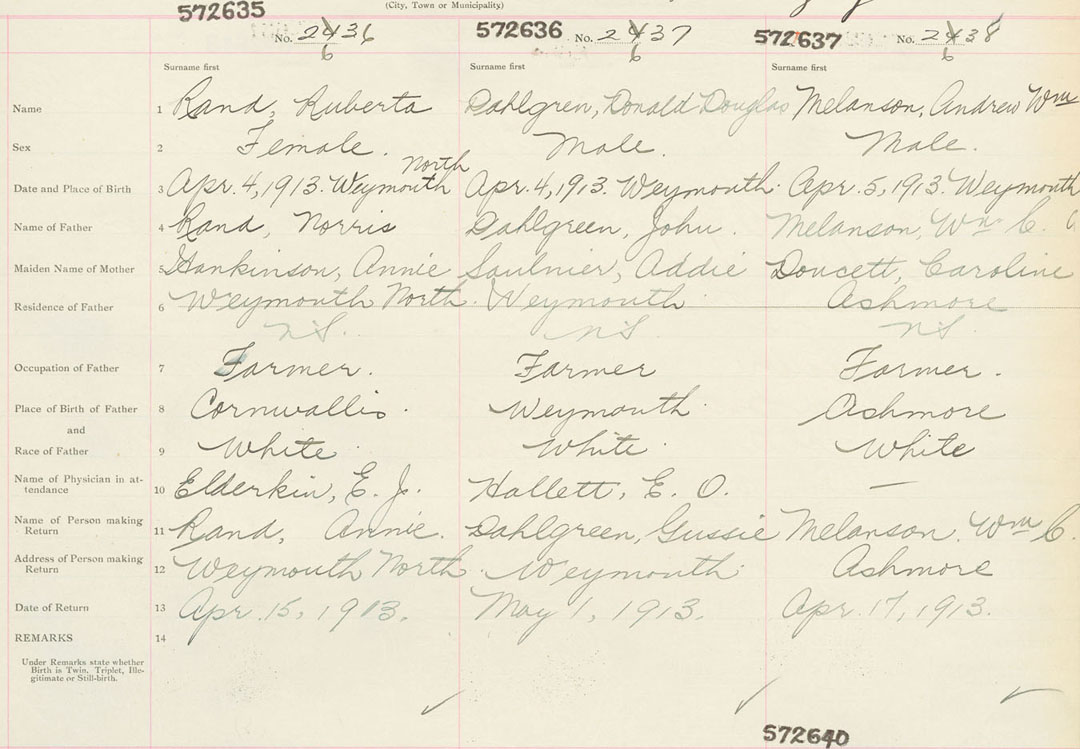 (City, Town or Municipality)
572635 No. 2436 572636 No. 2437 572637 No. 2438
6 6 6
Surname first Surname first Surname first
Name 1 Rand, Ruberta Dahlgren, Donald Douglas Melanson, Andrew Wm
Sex 2 Female. Male. Male.
North
Date and Place of Birth 3 Apr. 4, 1913. Weymouth Apr. 4, 1913. Weymouth. Apr. 5, 1913. Weymouth
Name of Father 4 Rand, Norris Dahlgreen, John. Melanson, Wm C.
Maiden Name of Mother 5 Hankinson, Annie Saulnier, Addie Doucett, Caroline
Residence of Father 6 Weymouth North. Weymouth. Ashmore
NS. NS. NS.
Occupation of Father 7 Farmer. Farmer Farmer.
Place of Birth of Father 8 Cornwallis. Weymouth. Ashmore
and
Race of Father 9 White. White. White
Name of Physician in at-
tendance 10 Elderkin, E. J. Hallett, E. O. —
Name of Person making
Return 11 Rand, Annie. Dahlgreen, Gussie Melanson, Wm C.
Address of Person making
Return 12 Weymouth North. Weymouth. Ashmore
Date of Return 13 Apr. 15, 1913. May 1, 1913. Apr. 17, 1913.
REMARKS 14
Under Remarks state whether
Birth is Twin, Triplet, Ille-
gitimate or Still-birth.
572640